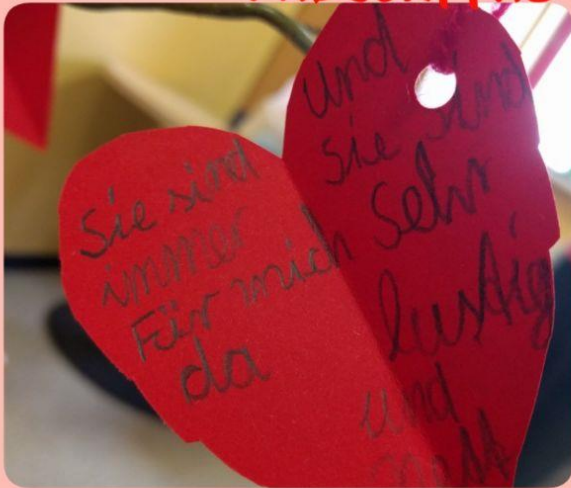 Sie sind
immer
Für mich
da
und
sie sind
sehr
lustig
und
nett